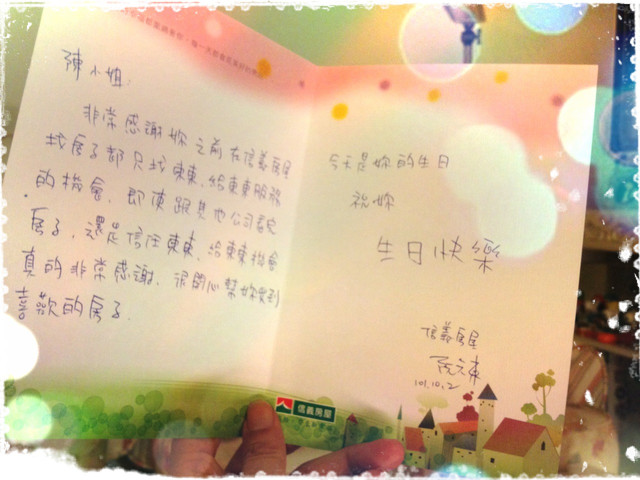 陳小姐:
非常感謝妳之前在信義房屋
找房子都只找東東，給東東服務
的機會，即使跟其他公司看完
房子，還是信任東東，給東東機會
真的非常感謝，很開心幫妳買到
喜歡的房子.
今天是妳的生日
祝妳
生日快樂
信義房屋
101.10.2
信義房屋